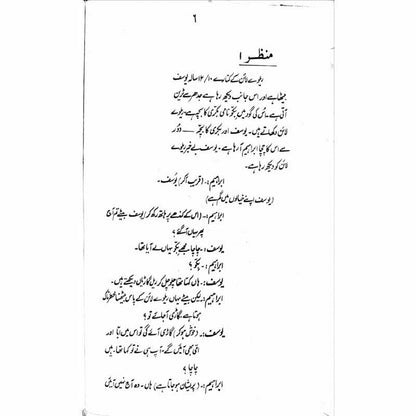 ۶
منظر ۱
ریلوے لائن کے کنارے ۱۰/۱۲ سالہ یوسف
بیٹھا ہے اور اس جانب دیکھ رہا ہے جدھر سے ٹرین
آتی ہے۔ اس کی گود میں پنکو نامی بکری کا بچہ ہے۔ ریلوے
لائن دکھاتے ہیں۔ یوسف اور بکری کا بچہ — دور
سے اس کا چچا ابراہیم آ رہا ہے۔ یوسف بے خبر ریلوے
لائن کو دیکھ رہا ہے۔
ابراہیم :۔ (قریب آکر) یوسف۔
(یوسف اپنے خیالوں میں گم ہے)
ابراہیم :۔ (اس کے کندھے پر ہاتھ رکھ کر) یوسف بیٹے تم آج
پھر یہاں آ گئے ؟
یوسف :۔ چاچا۔ مجھے پنکو یہاں لے آیا تھا۔
ابراہیم :۔ پنکو ؟
یوسف :۔ ہاں کہتا تھا چلو چل کر ریل گاڑیاں دیکھتے ہیں۔
ابراہیم :۔ لیکن بیٹے یہاں ریلوے لائن کے پاس بیٹھنا خطرناک
ہوتا ہے گاڑی آجائے تو ؟
یوسف :۔ (خوش ہو کر) گاڑی آئے گی تو اس میں ابا اور
امی بھی آئیں گے۔ آپ ہی نے تو کہا تھا۔ ہیں
چاچا ؟
ابراہیم :۔ (پریشان ہو جاتا ہے) ہاں۔ وہ آج نہیں آئیں